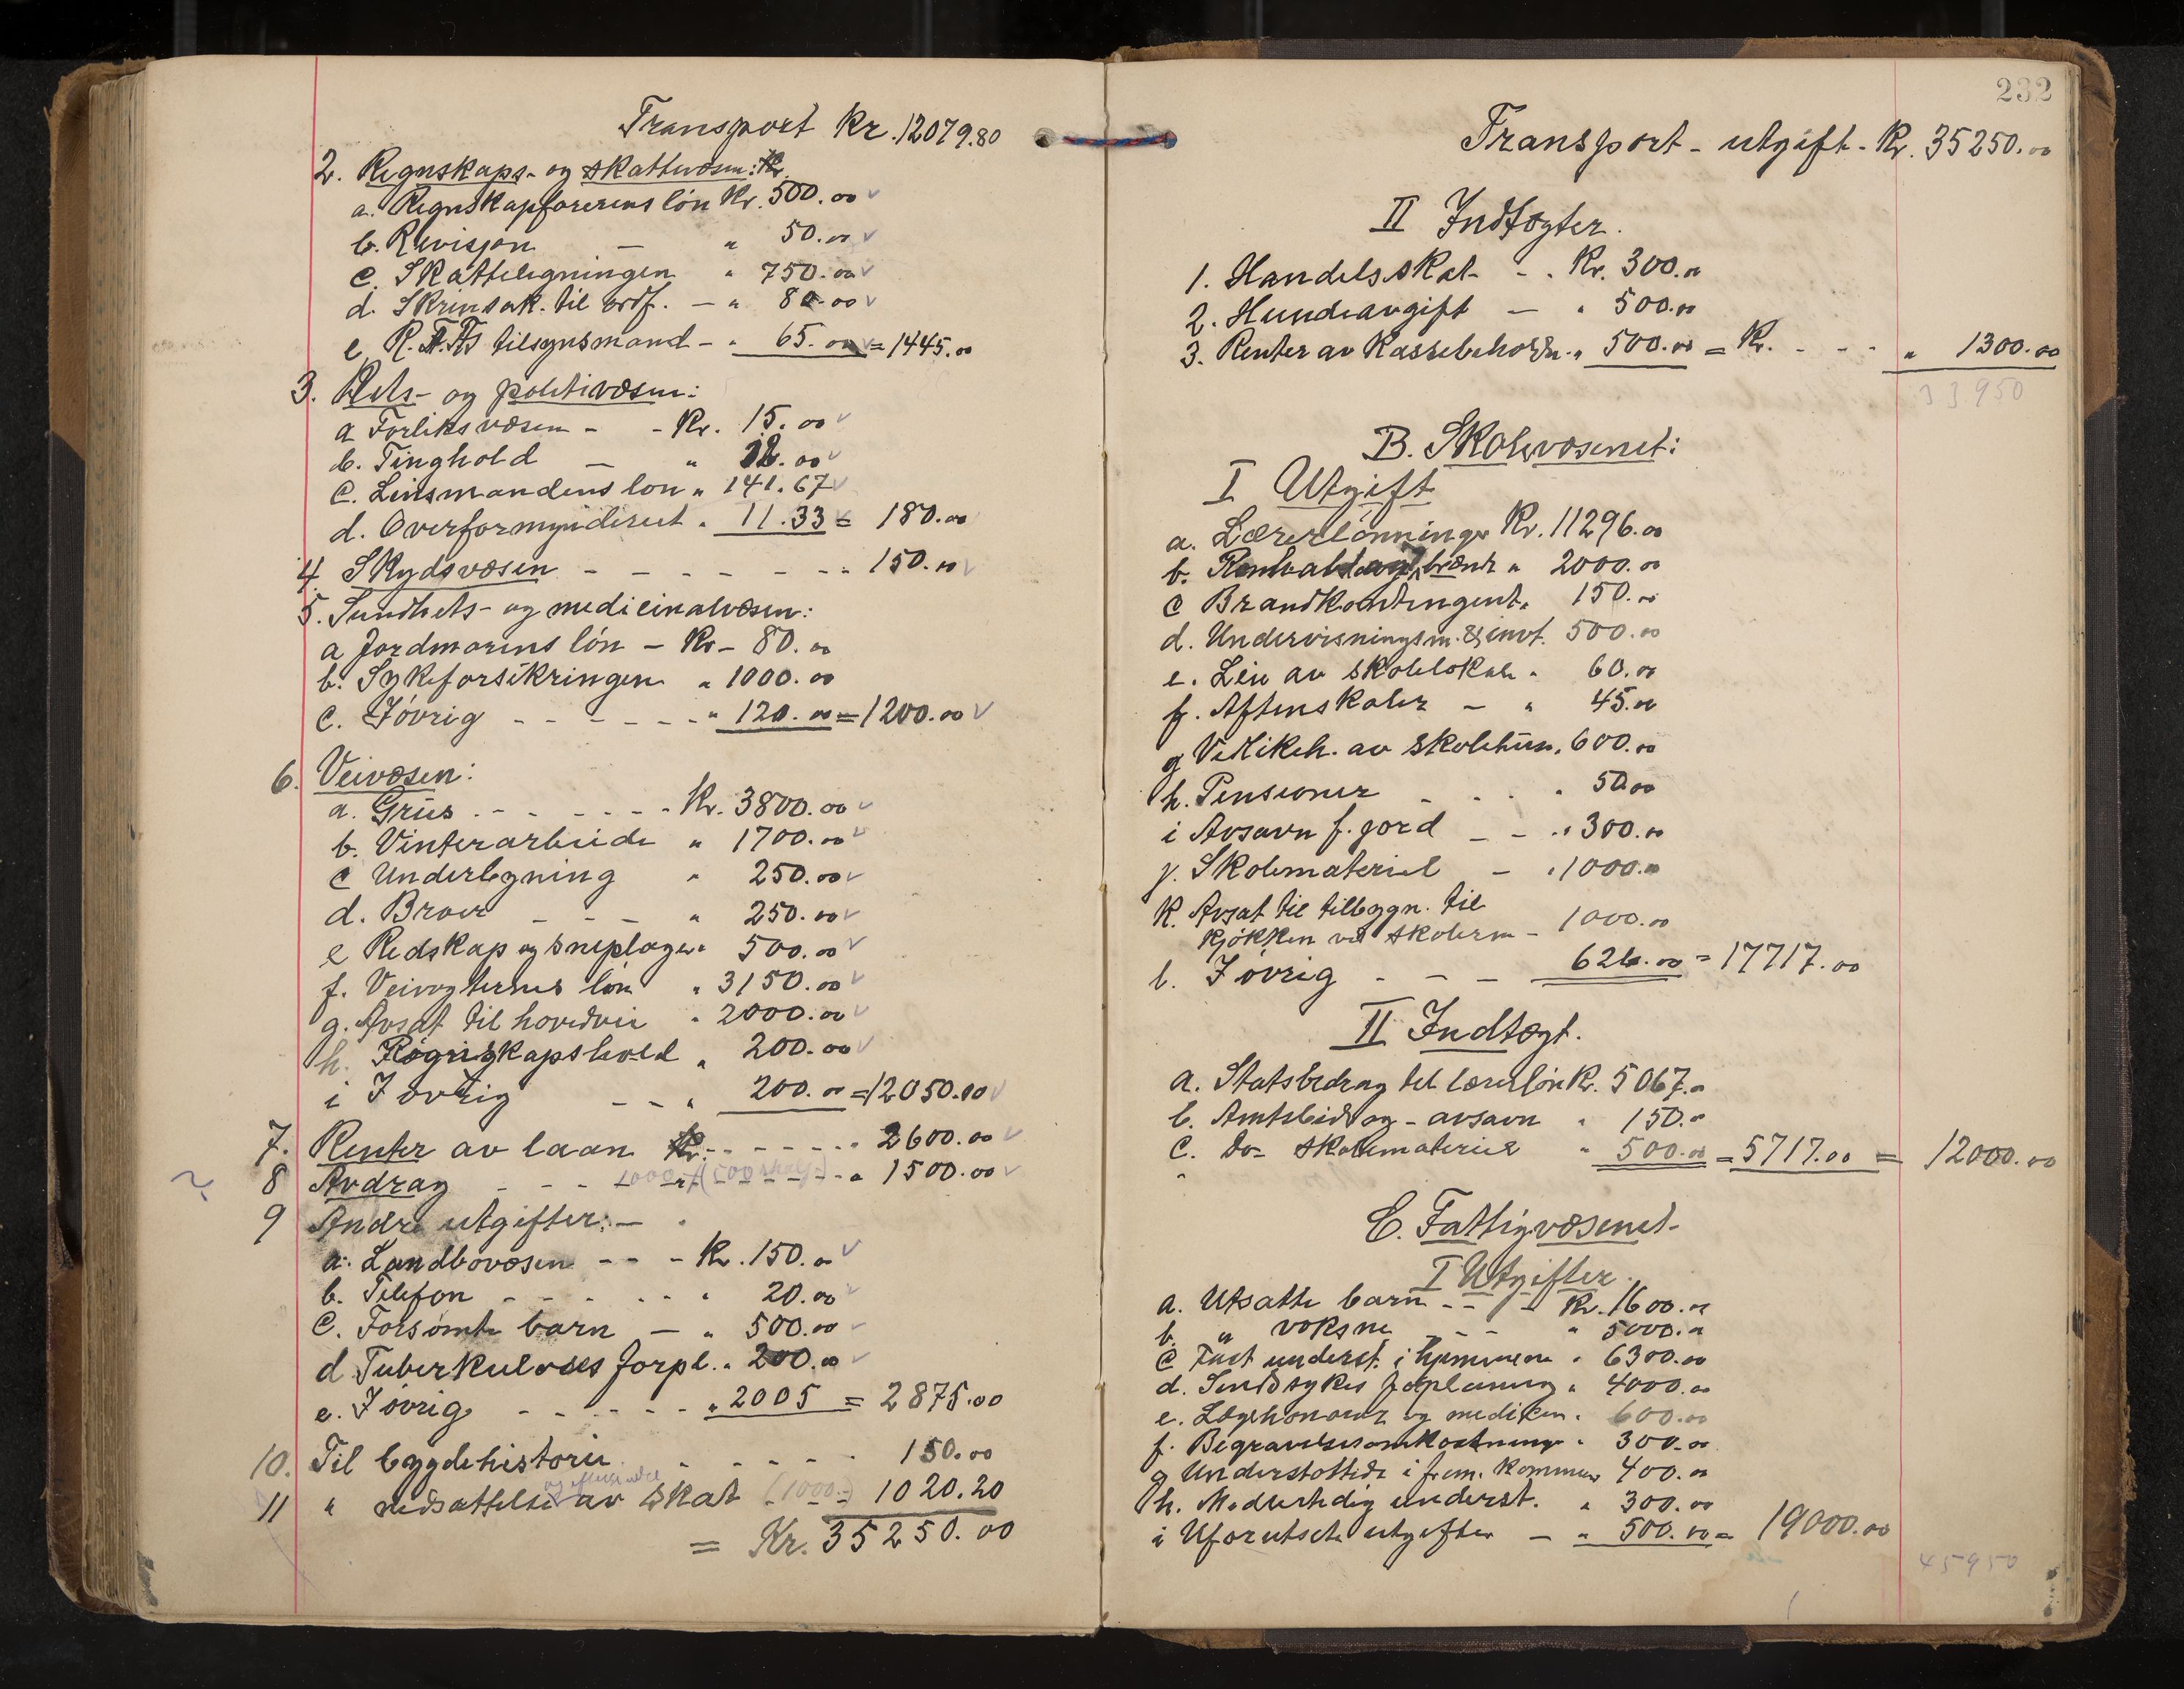 Transport Kr. 12079.80
2. Regnskaps- og skattevæsen:
a. Regnskapsførerens løn Kr. 500.00
b. Revisjon — " 50.00
c. Skattelegningen " 750.00
d. Skrinsak. til ordf. — " 80.00
e. R.T.T's tilsynsmand - " 65.00 = 1445.00
3. Rets- og politivæsen:
a Forliksvæsen - - Kr. 15.00
b. Tinghold — " 12.00
c. Lensmandens løn " 141.67
d. Overformynderiet " 11.33 = 180.00
4. Skydsvæsen - - - - - - - " 150.00
5. Sundhets- og medicinalvæsen:
a Jordmorens løn - Kr - 80.00
b. Sykeforsikringen " 1000.00
c. Iøvrig - - - - - - " 120.00 = 1200.00
6. Veivæsen:
a. Grus - - - - - - Kr. 3800.00
b. Vinterarbeide " 1700.00
c Underlegning " 250.00
d. Broer - - - " 250.00
e Redskap og sneploger " 500.00
f. Veivogternes løn " 3150.00
g. Avsat til hovedvei " 2000.00
h. Regnskapshold " 200.00
i Iøvrig - - " 200.00 = 12050.00
7. Renter av laan - - - - - - " 2600.00
8 Avdrag - - - - - - " 1500.00
9 Andre utgifter: —
a. Landbovæsen - - - Kr. 150.00
b. Telefon - - - - - " 20.00
c. Forsømte barn — " 500.00
d Tuberkuloses forpl. " 200.00
e. Iøvrig - - - - - " 2005 = 2875.00
10. Til bygdehistorie - - - - - 150.00
og eftergivelse
11 " nedsættelse av skat (1000.-) 1020.20
= Kr. 35250.00
232
Transport - utgift - Kr. 35250.00
II Indtægter.
1. Handelsskat - . Kr. 300.00
2. Hundeavgift — " 500.00
3. Renter av Kassebeholdn. " 500.00 = Kr. - - - " 1300.00
33950
B. Skolevæsenet:
I Utgift
a. Lærerlønninger Kr. 11296.00
b. Renhold og brænde " 2000.00
c Brandkontingent " 150.00
d. Undervisningsm. & invt. 500.00
e. Leie av skolelokale " 60.00
f. Aftenskoler — " 45.00
g Vedlikeh. av skolehus. 600.00
h. Pensioner - . . " 50.00
i Avsavn f. jord - - " 300.00
j. Skolemateriel — " 1000.00
k. Avsat til tilbygn. til
kjøkken ved skolerne - 1000.00
l. Iøvrig - - - 626.00 = 17717.00
II Indtægt.
a. Statsbidrag til lærerløn Kr. 5067.00
b. Amtsbidrag - avsavn " 150.00
c. Do- skolemateriel " 500.00 = 5717.00 = 12000.00
C. Fattigvæsenet.
I Utgifter.
a. Utsatte barn - - - Kr. 1600.00
b. " voksne - - " 5000.00
c Fast underst. i hjemmene " 6300.00
d. Sindsykes forpleining " 4000.00
e. Lægehonorar og medicin " 600.00
f. Begravelsesomkostninger " 300.00
g Understøttede i frem. kommuner 400.00
h. Midlertidig underst. " 300.00
i Uforutsete utgifter — " 500.00 = 19000.00
45950